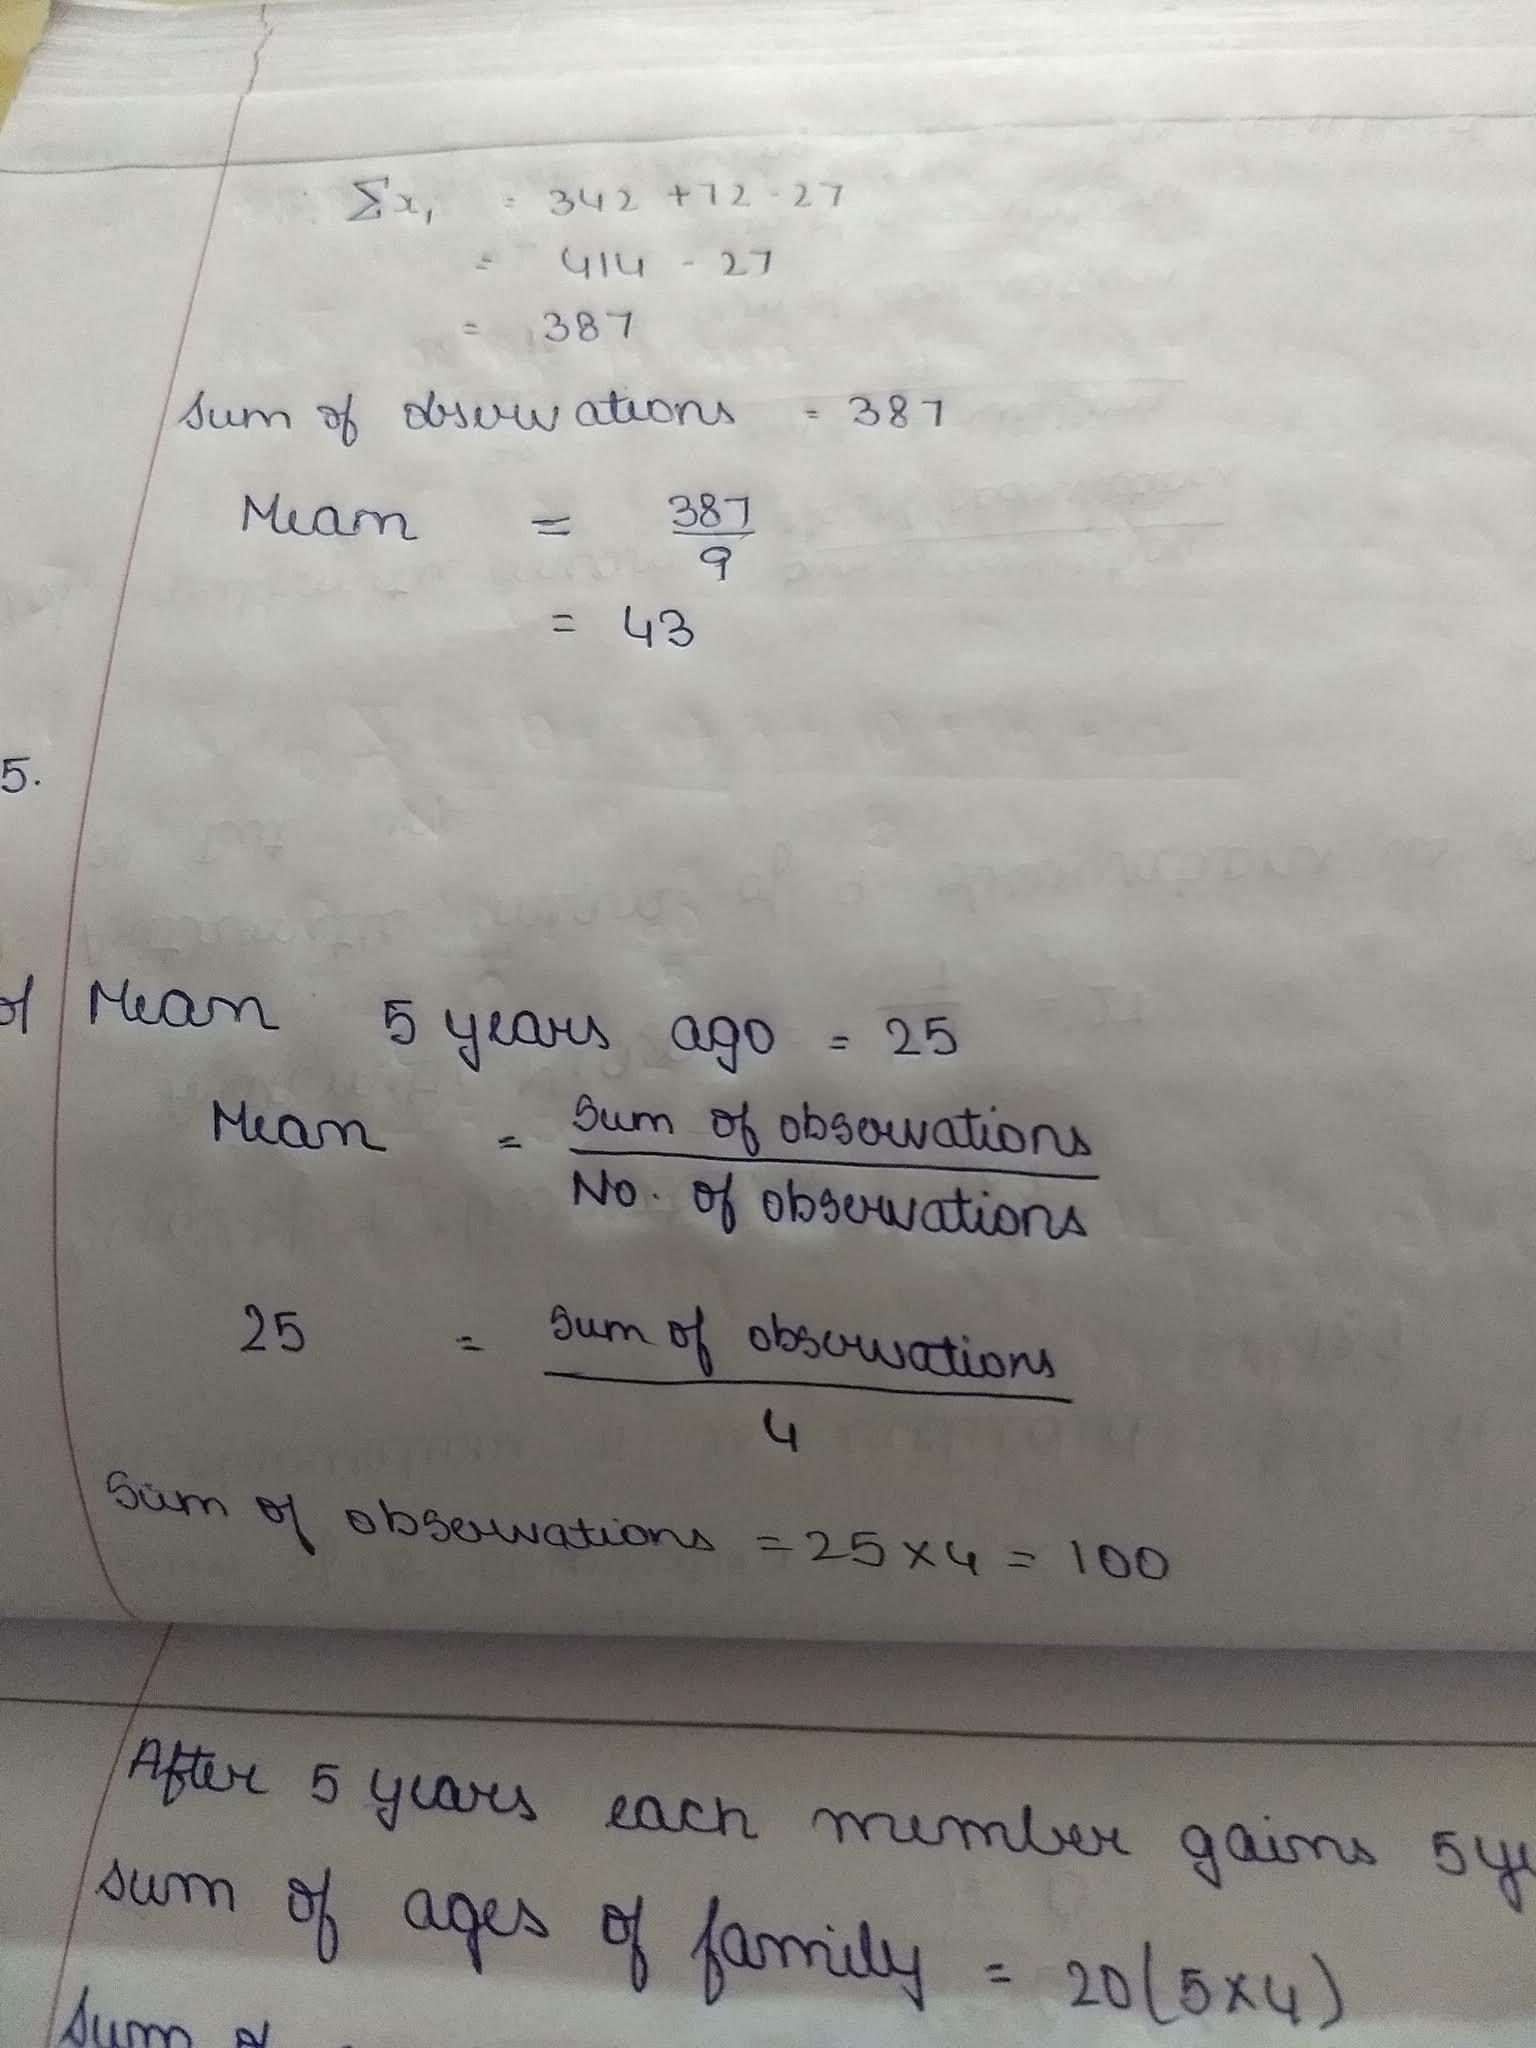 Σx₁ = 342 + 72 - 27
= 414 - 27
= 387
Sum of observations = 387
Mean = 387/9
= 43
5.
of Mean 5 years ago = 25
Mean = Sum of observations / No. of observations
25 = Sum of observations / 4
Sum of observations = 25 × 4 = 100
After 5 years each member gains 5 ye
Sum of ages of family = 20 (5×4)
Sum